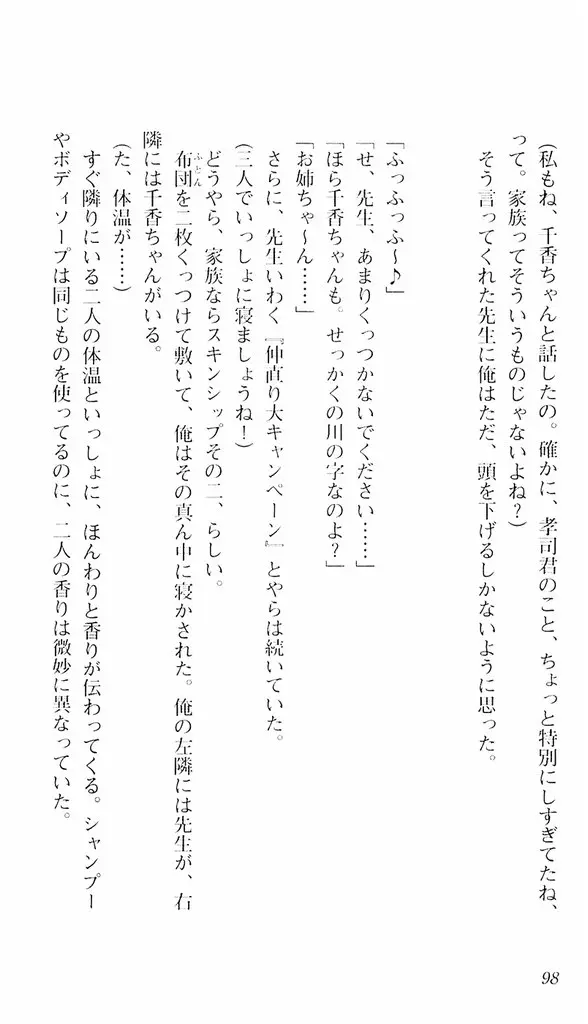 (私もね、千香ちゃんと話したの。確かに、孝司君のこと、ちょっと特別にしすぎてたね、
って。家族ってそういうものじゃないよね?)
そう言ってくれた先生に俺はただ、頭を下げるしかないように思った。
「ふっふっふ~♪」
「せ、先生、あまりくっつかないでください……」
「ほら千香ちゃんも。せっかくの川の字なのよ?」
「お姉ちゃ~ん……」
さらに、先生いわく『仲直り大キャンペーン』とやらは続いていた。
(三人でいっしょに寝ましょうね!)
どうやら、家族ならスキンシップその二、らしい。
布団を二枚くっつけて敷いて、俺はその真ん中に寝かされた。俺の左隣には先生が、右
ふとん
隣には千香ちゃんがいる。
(た、体温が……)
すぐ隣りにいる二人の体温といっしょに、ほんわりと香りが伝わってくる。シャンプー
やボディソープは同じものを使ってるのに、二人の香りは微妙に異なっていた。
98